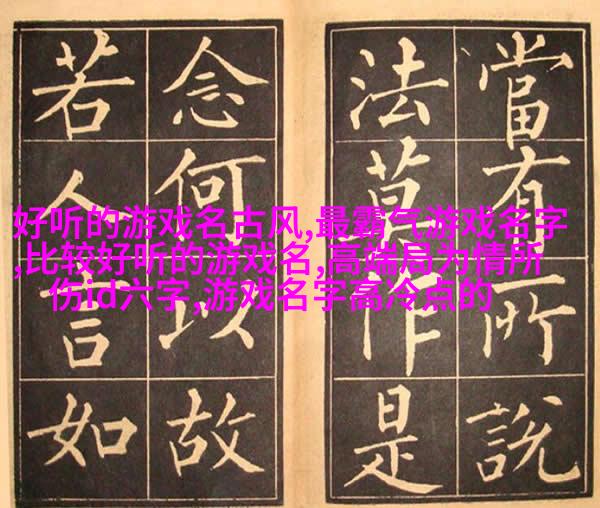 當有所說
法莫作是
念何以故
若人言如
好听的游戏名古风,最霸气游戏名字
,比较好听的游戏名,高端局为情所
伤id六字,游戏名字高冷点的